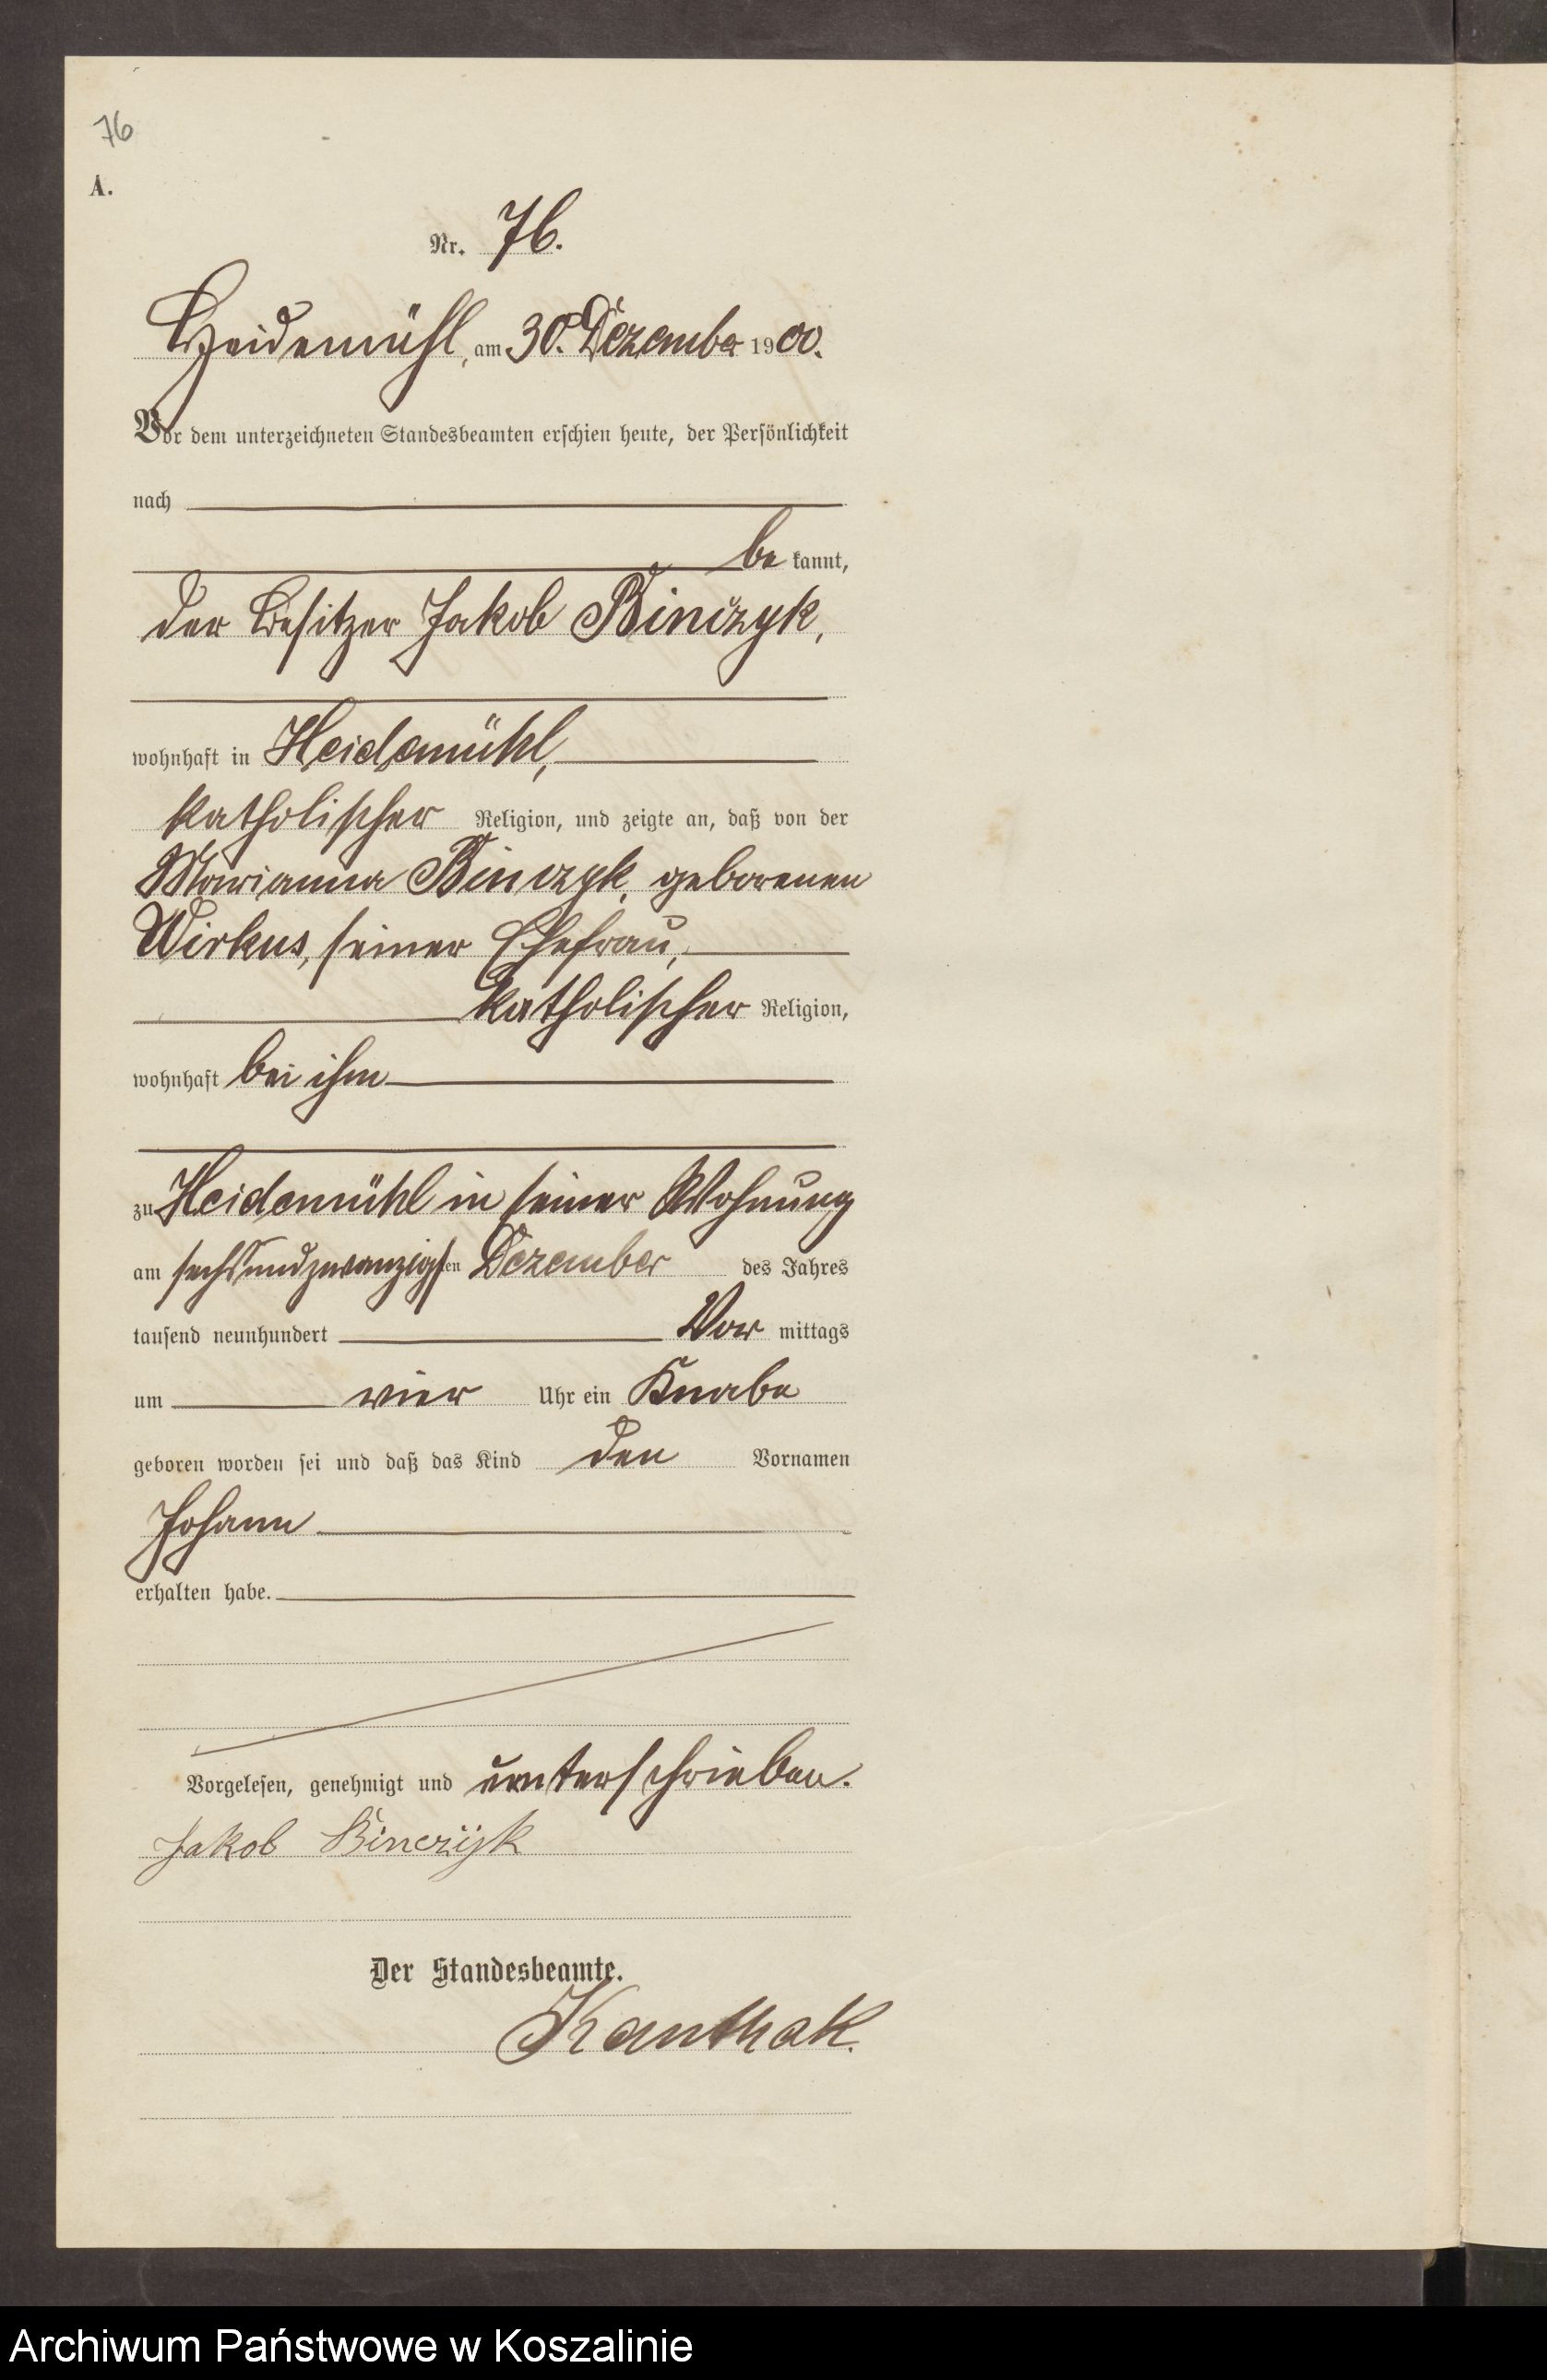 76
A.
Nr. 76.
Heidemühl, am 30. Dezember 1900.
Vor dem unterzeichneten Standesbeamten erschien heute, der Persönlichkeit
nach
be kannt,
der Besitzer Jakob Binczyk,
wohnhaft in Heidemühl,
katholischer Religion, und zeigte an, daß von der
Marianna Binczyk, geborenen
Wirkus, seiner Ehefrau,
katholischer Religion,
wohnhaft bei ihm
zu Heidemühl in seiner Wohnung
am sechsundzwanzigsten Dezember des Jahres
tausend neunhundert Vor mittags
um vier Uhr ein Knabe
geboren worden sei und daß das Kind den Vornamen
Johann
erhalten habe.
Vorgelesen, genehmigt und unterschrieben.
Jakob Binczyk
Der Standesbeamte.
Kanthak.
Archiwum Państwowe w Koszalinie